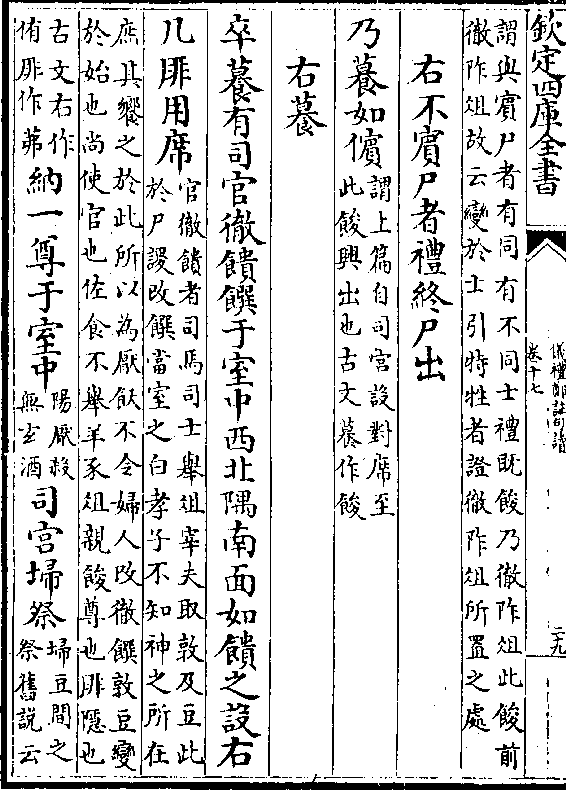 欽定四庫全書
儀禮鄭註句讀
卷十七
二九
謂與賓尸者有同有不同士禮既餕乃徹阼俎此餕前
徹阼俎故云變於士引特牲者證徹阼俎所置之處
右不賓尸者禮終尸出
乃䕩如儐謂上篇自司宮設對席至
此餕興出也古文䕩作餕
右䕩
卒䕩有司官徹饋饌于室中西北隅南面如饋之設右
几厞用席官徹饋者司馬司士舉俎宰夫取敦及豆此
於尸謖改饌當室之白孝子不知神之所在
庶其饗之於此所以為厭飫不令婦人改徹饌敦豆變
於始也尚使官也佐食不舉羊豕俎親餕尊也厞隱也
古文右作
侑厞作茀納一尊于室中陽厭殺
無玄酒司宮埽祭埽豆間之
祭舊說云